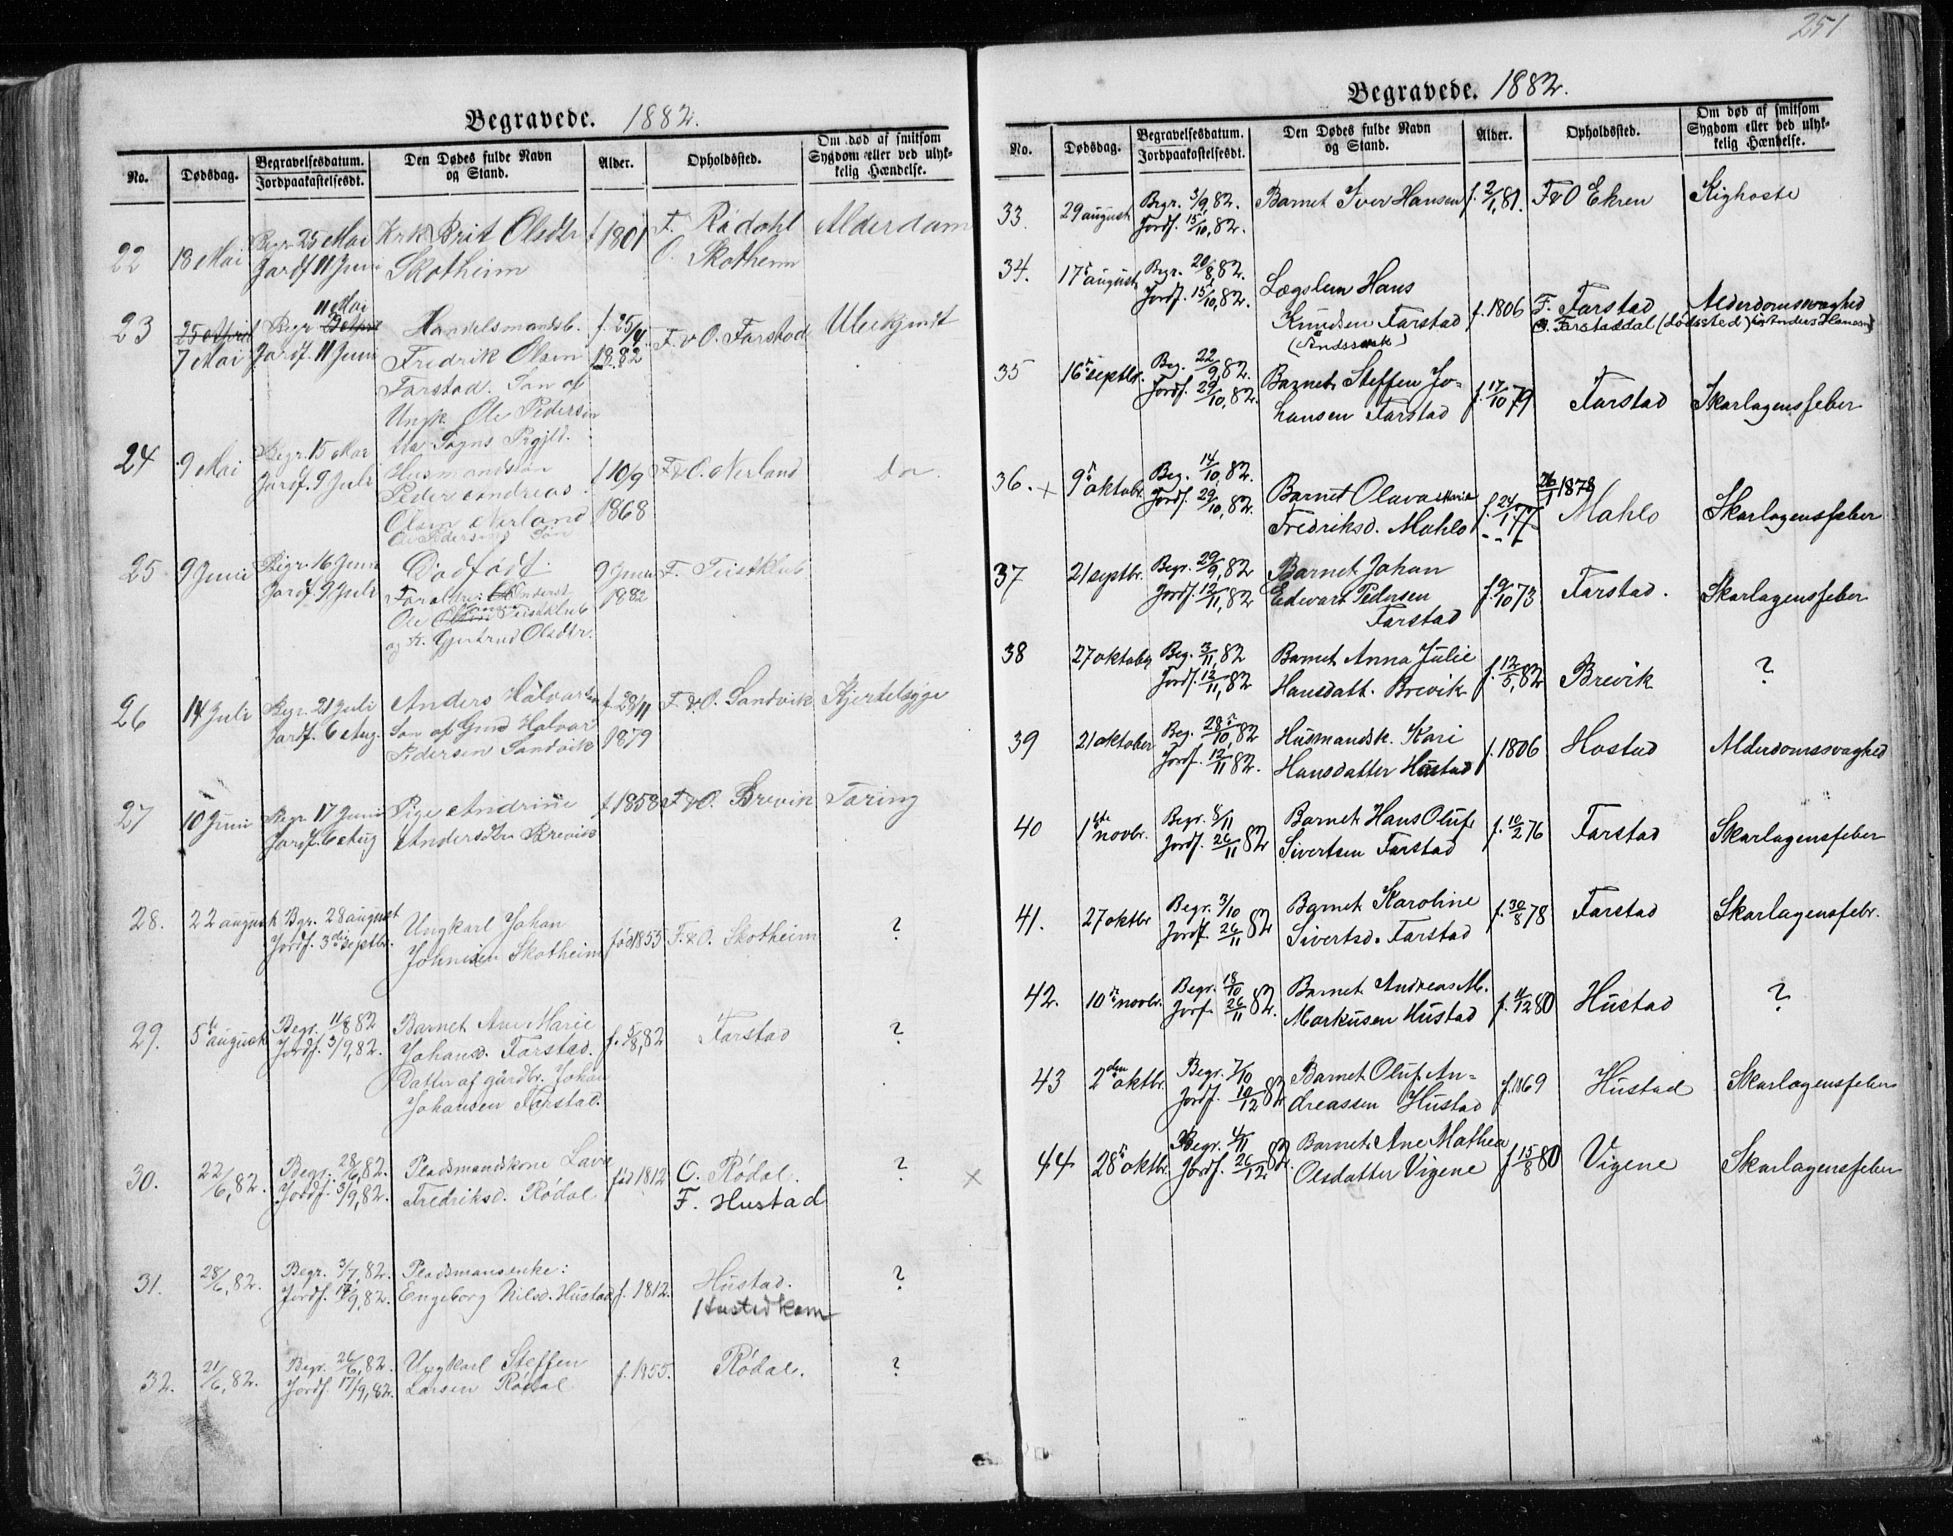 251
Begravede. 1882.
No.
Dødsdag.
Begravelsesdatum.
Jordpaakastelsesdt.
Den Dødes fulde Navn
og Stand.
Alder.
Opholdssted.
Om død af smitsom
Sygdom eller ved ulyk-
kelig Hændelse.
22
18 Mai
Begr. 25 Mai
Jordf 11 Juni
Brit Olsdtr
Skotheim
f 1801
F. Rødahl
O. Skotheim
Alderdom
23
25 April
7 Mai
11 Mai
Begr
Jordf. 11 Juni
Handelsmandsb.
Fredrik Olsen
Farstad. Søn af
Ungk. Ole Pedersen
f. 25/4
1882
F. & O. Farstad
Ubekjendt
24
9 Mai
Begr. 15 Mai
Jordf. 9 Juli
Husmandssøn
Peder Andreas
Olsen Nerland
Ole Pedersens Søn
f 10/9
1868
F. & O. Nerland
do
25
9 Juni
Begr. 16 Juni
Jordf. 9 Juli
Dødfødt
Forældre:
Ole
og K. Gjertrud Olsdtr.
9 Juni
1882
F. Teistklub
26
14 Juli
Begr. 21 Juli
Jordf. 6 Aug.
Anders Halvorsen
Søn af Gmd Halvor
Pedersen Sandvik
f 28/11
1879
F. & O. Sandvik
Kjertelsyge
27
10 Juni
Begr 17 Juni
Jordf. 6 Aug
Pige Andrine
Andersdtr Brevik
f 1858
F. & O. Brevik
Tæring
28.
22 august
Bgr. 28 august
Jordf. 3die septbr.
Ungkarl Johan
Johnsen Skotheim
fød 1853
F. & O. Skotheim
?
29.
5te august
Begr. 11/8 82
Jordf. 3/9, 82.
Barnet Ane Marie
Johansd. Farstad.
Datter af gårdbr. Johan
Johansen Farstad.
f. 5/8, 82
Farstad
?
30.
22/6, 82.
Begr. 28/6, 82.
Jordf. 3/9, 82.
Pladsmandskone Lava
Fredriksd. Rødal
fød 1812
O. Rødal.
F. Hustad
?
31.
28/6, 82.
Begr. 3/7, 82.
Jordf. 17/9, 82.
Pladsmansenke:
Engeborg Nilsd. Hustad
f. 1812.
Hustad.
?
32.
21/6, 82.
Begr. 26/6, 82.
Jordf. 17/9, 82.
Ungkarl Steffen
Larsen Rødal
f. 1855.
Rødal.
?
Begravede. 1882.
No.
Dødsdag.
Begravelsesdatum.
Jordpaakastelsesdt.
Den Dødes fulde Navn
og Stand.
Alder.
Opholdssted.
Om død af smitsom
Sygdom eller ved ulyk-
kelig Hændelse.
33.
29 august
Begr. 3/9, 82.
Jordf. 15/10, 82.
Barnet Iver Hansen
f. 2/1, 81.
F & O Ekren
Kighoste
34.
17de august
Begr. 20/8, 82.
Jordf. 15/10, 82.
Lægslem Hans
Knudsen Farstad
(Sindssvak)
f. 1806
F. Farstad
O. Farstaddal (dødssted)
Alderdomssvaghed
35
16de septbr.
Beg. 22/9, 82.
Jordf. 29/10, 82.
Barnet Steffen Jo-
hansen Farstad
f. 17/10 79
Farstad
Skarlagensfeber
36. x
9de oktobr.
Beg. 14/10, 82.
Jordf. 29/10, 82.
Barnet Olava Marie
Fredriksd. Mahlo
f. 24/1 77
26/1 1878
Mahlo
Skarlagensfeber
37
21 septbr.
Begr. 29/9, 82
Jordf. 12/11, 82
Barnet Johan
Edwart Pedersen
Farstad
f. 9/10 73
Farstad.
Skarlagensfeber
38
27 oktober
Beg. 3/11, 82
Jordf. 12/11, 82
Barnet Anna Julie
Hansdatt. Brevik
f. 12/5, 82
Brevik
?
39
21 oktober
Beg. 28/10, 82
Jordf. 12/11 82.
Husmandsk. Kari
Hansdatter Hustad
f. 1806
Hostad
Alderdomssvaghed
40
1ste novbr.
Begr. 6/11
Jordf. 26/11 82
Barnet Hans Oluf
Sivertsen Farstad
f. 10/2 76
Farstad
Skarlagensfeber
41.
27 oktbr
Begr. 3/10
Jordf. 26/11 82
Barnet Karoline
Sivertsd. Farstad
f. 30/8 78
Farstad
Skarlagensfebr.
42.
10de novbr.
Begr. 18/10
Jorf. 26/11 82.
Barnet Andreas M.
Markusen Hustad
f. 11/12 80
Hustad
?
43
2den oktbr.
Begr. 7/10
Jordf. 10/12 82
Barnet Oluf An-
dreassen Hustad
f. 1869
Hustad
Skarlagensfeber
x 44
28de oktbr.
Begr. 4/11
Jordf. 26/12 82.
Barnet Ane Mathea
Olsdatter Vigene
f 15/8 80
Vigene
Skarlagensfeber